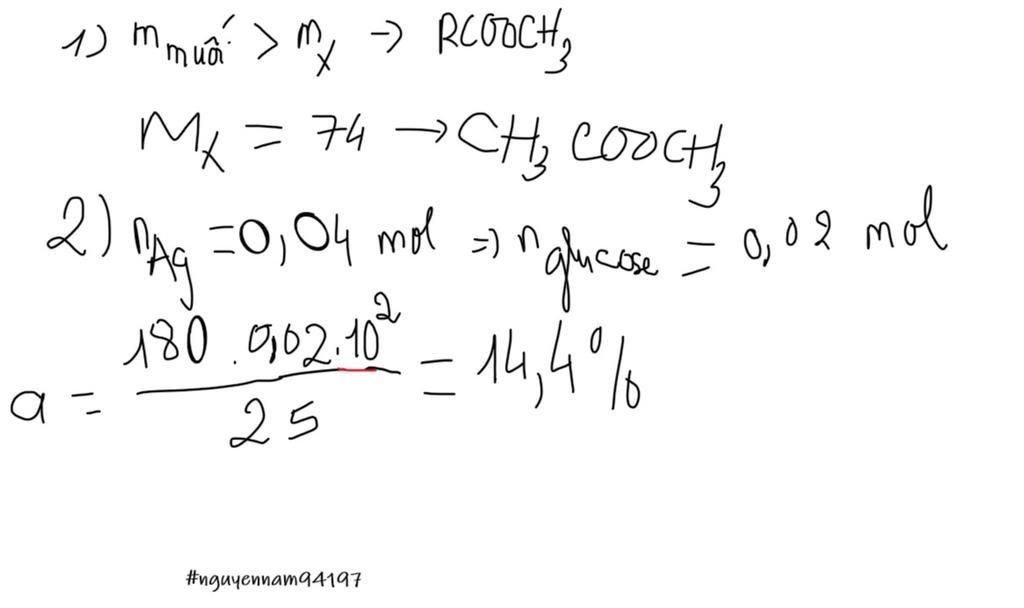 1) m muối > m X → RCOOCH3
M X = 74 → CH3 COOCH3
2) n Ag = 0,04 mol => n glucose = 0,02 mol
a = 180 . 0,02.10^2 / 25 = 14,4%
#nguyennam94197